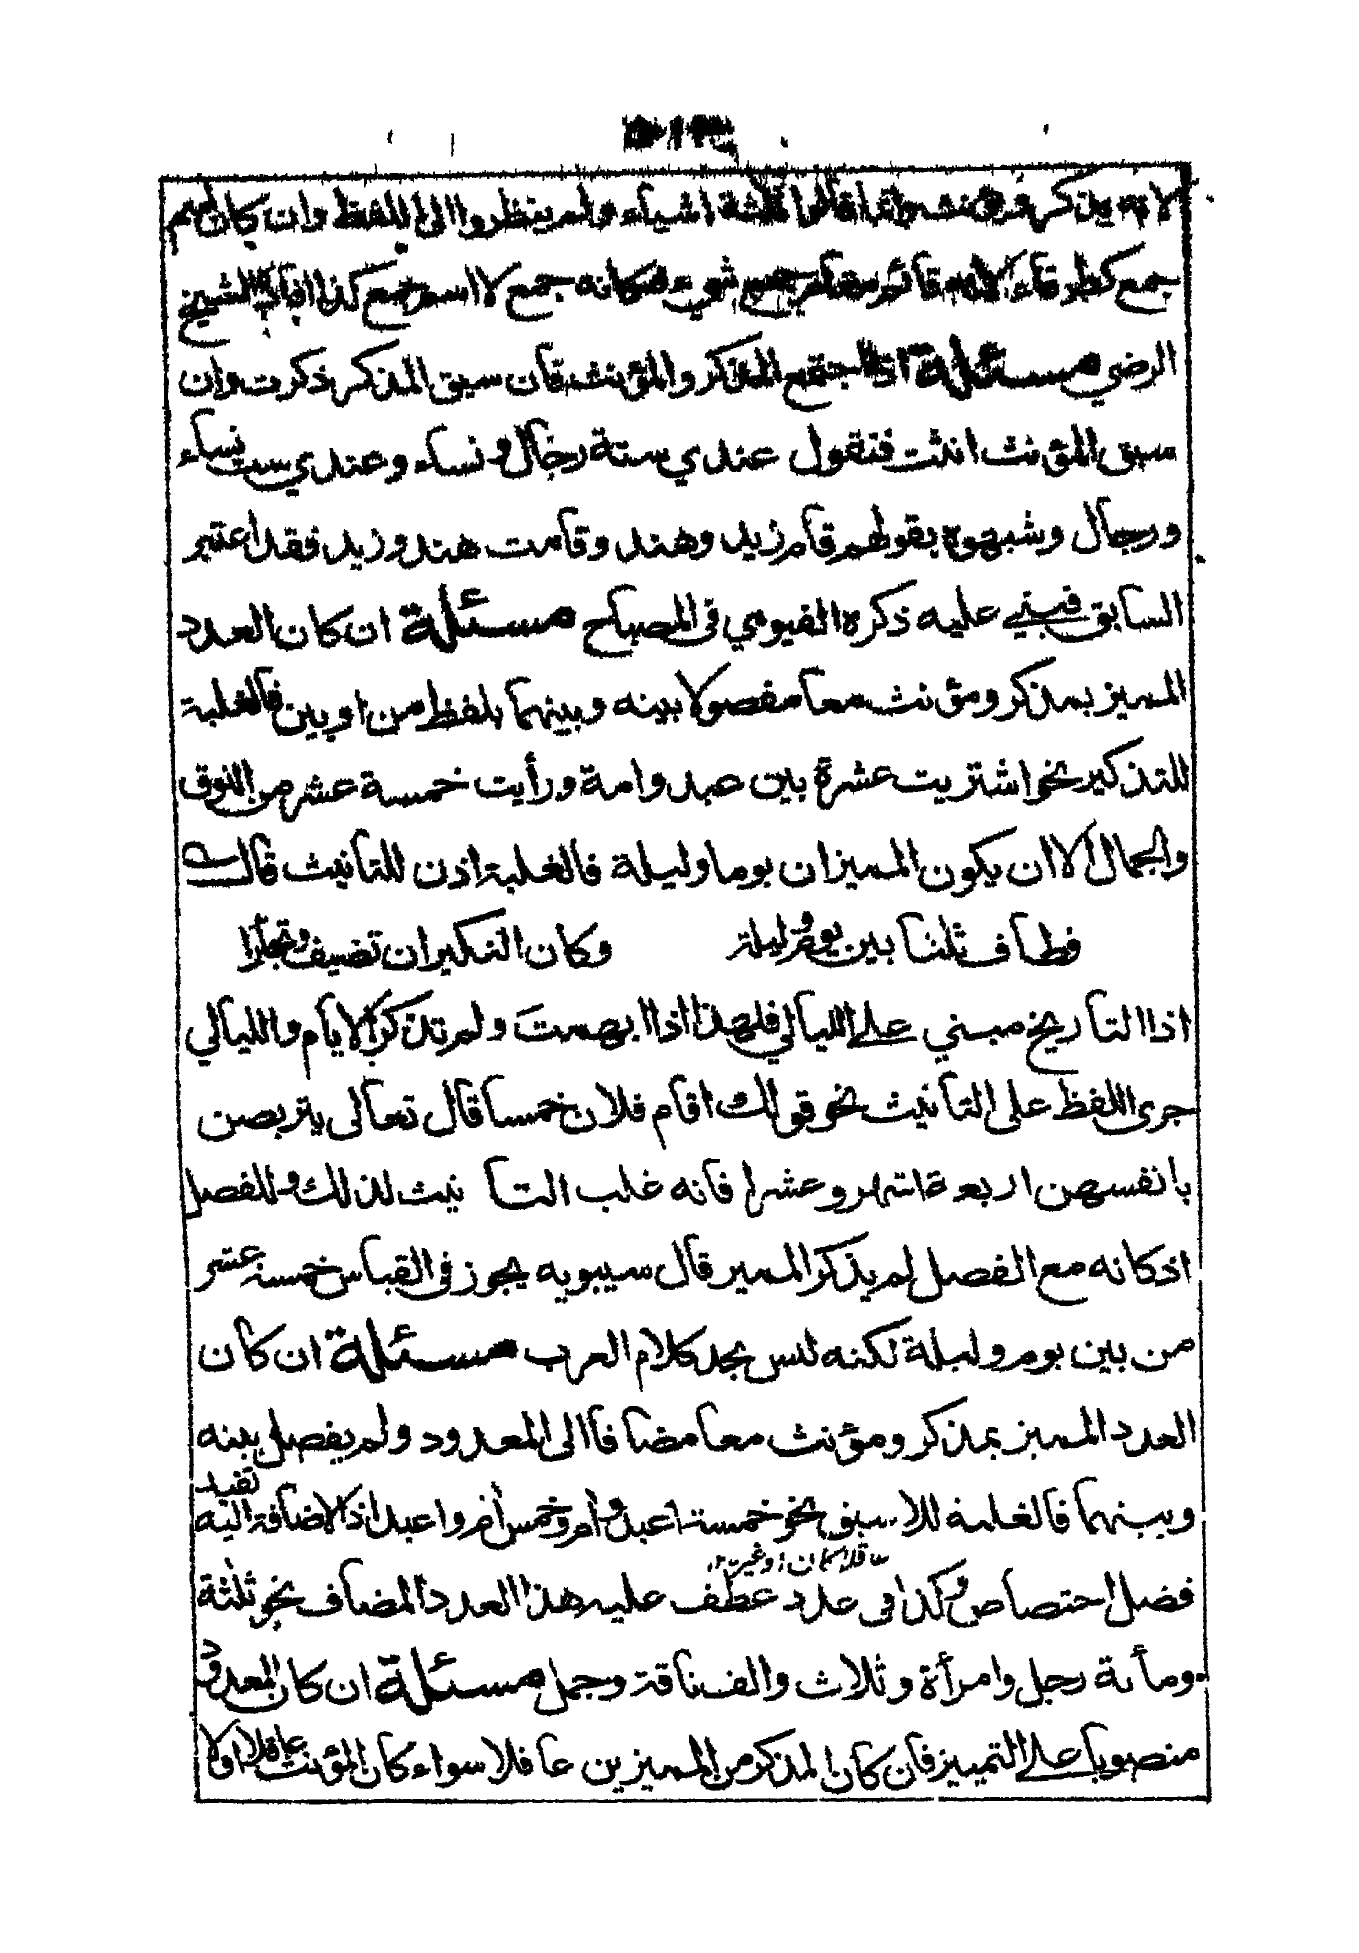 لانه يذكر ويؤنث وانما قالوا ثلثة اشياء ولم ينظروا الى اللفظ وان كان اسم
جمع كطرفاء لانه قائم مقام جمع شيء فكانه جمع لا اسم جمع كذا افاد الشيخ
الرضي مسئلة اذا اجتمع المذكر والمؤنث فان سبق المذكر ذكرت وان
سبق المؤنث انثت فتقول عندي ستة رجال ونساء وعندي ست نساء
ورجال وشبهوه بقولهم قام زيد وهند وقامت هند وزيد فقد اعتبر
السابق فبني عليه ذكره الفيومي في المصباح مسئلة ان كان العدد
المميز بمذكر ومؤنث معا مفصولا بينه وبينهما بلفظ من او بين فالغلبة
للتذكير نحو اشتريت عشرة بين عبد وامة ورأيت خمسة عشر من النوق
والجمال الا ان يكون المميزان يوما وليلة فالغلبة اذن للتانيث قال
فطاف ثلثا بين يوم وليلة وكان النكير ان تضيف وتجأرا
اذا التاريخ مبني على الليالي فلهذا اذا ابهمت ولم تذكر الايام والليالي
جرى اللفظ على التانيث نحو قولك اقام فلان خمسا قال تعالى يتربصن
بانفسهن اربعة اشهر وعشرا فانه غلب التا نيث لذلك وللفصل
اذ كانه مع الفصل لم يذكر المميز قال سيبويه يجوز في القياس خمسة عشر
من بين يوم وليلة لكنه ليس بجد كلام العرب مسئلة ان كان
العدد المميز بمذكر ومؤنث معا مضافا الى المعدود ولم يفصل بينه
وبينهما فالغلبة للاسبق نحو خمسة اعبد وأم وخمس أم واعبد اذ الاضافة اليه تفيد
فضل اختصاص وكذا في عدد عطف عليه هذا العدد المضاف نحو ثلثة
ومأنة رجل وامرأة وثلاث والف ناقة وجمل مسئلة ان كان المعدود
منصوبا على التمييز فان كان المذكر من المميزين عاقلا سواء كان المؤنث عاقلا اولا